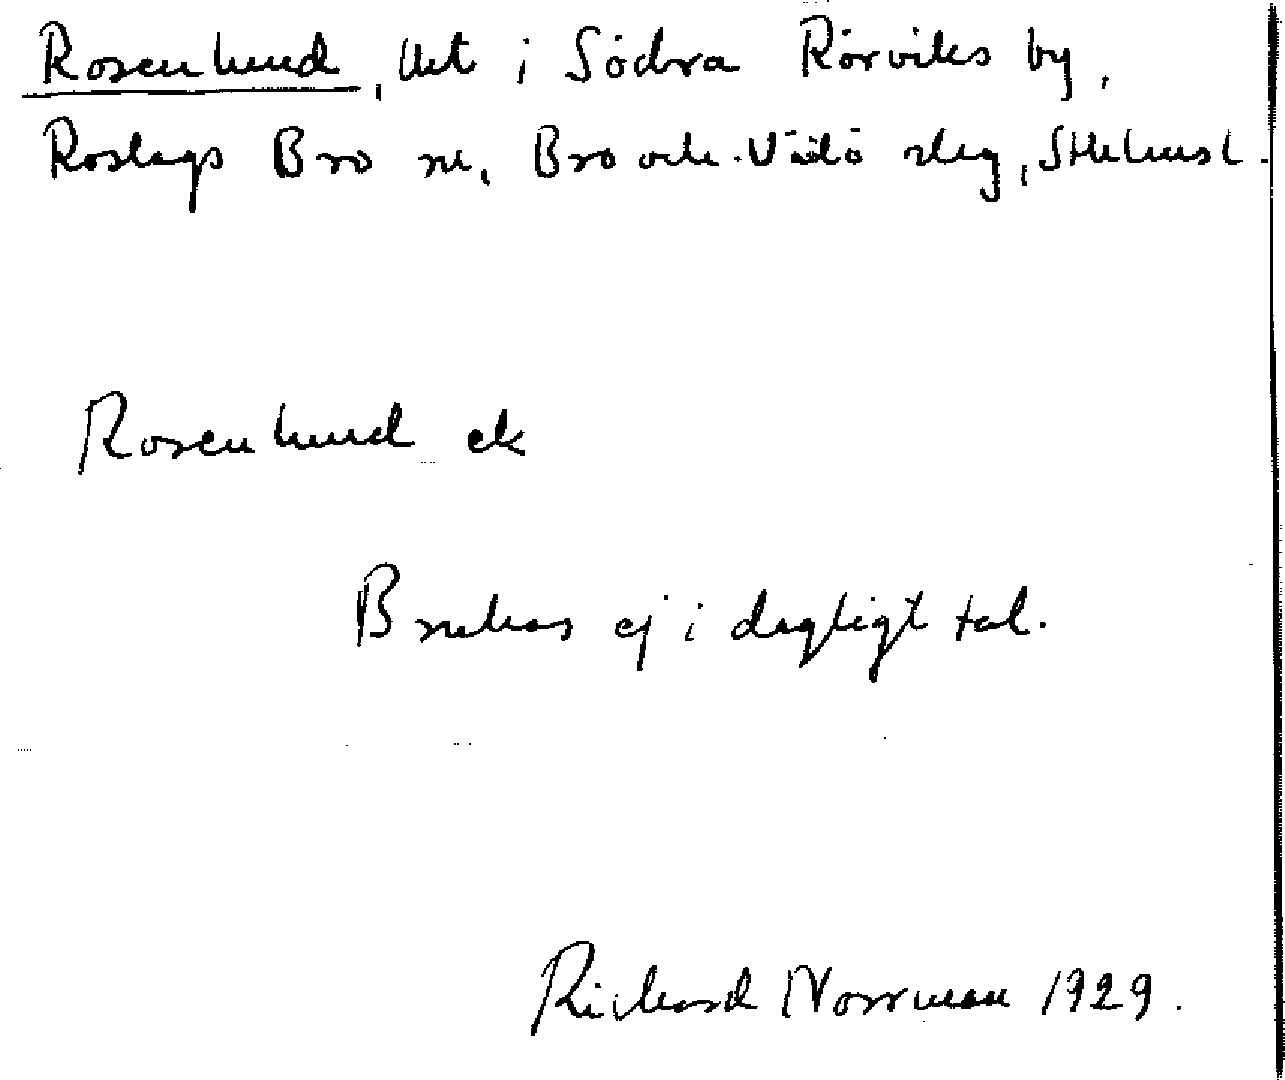 Rosenlund, lht i Södra Rörviks by,
Roslags Bro sn, Bro och Vätö slag, Sthlms l.
Rosenlund ek
Brukas ej i dagligt tal.
Richard Norrman 1929.